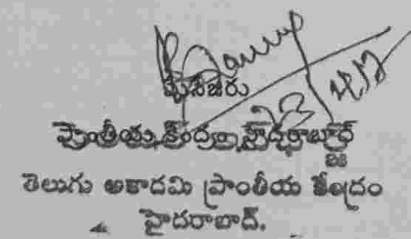 మేనేజరు
ప్రాంతీయ కేంద్రం, హైదరాబాద్
తెలుగు అకాదమి ప్రాంతీయ కేంద్రం
హైదరాబాద్.